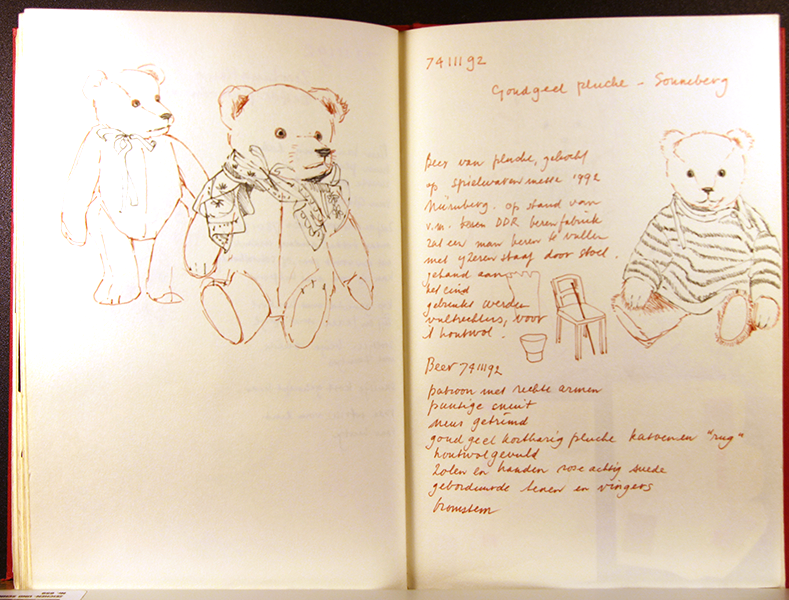 74 III 92
Goudgeel pluche - Sonneberg
Beer van pluche, gekocht
op Spielwarenmesse 1992
Nürnberg. op stand van
v.m. DDR berenfabriek
zat een man beren te vullen
met yzeren staaf door stoel.
gehand aan
het eind
gebruikt werden
vultrechters, voor
't houtwol.
Beer 74 III 92
patroon met rechte armen
puntige snuit
neus getrimd
goud geel kortharig pluche katoenen "rug"
houtwolgevuld
Zolen en handen rose achtig suede
geborduurde tenen en vingers
bromstem